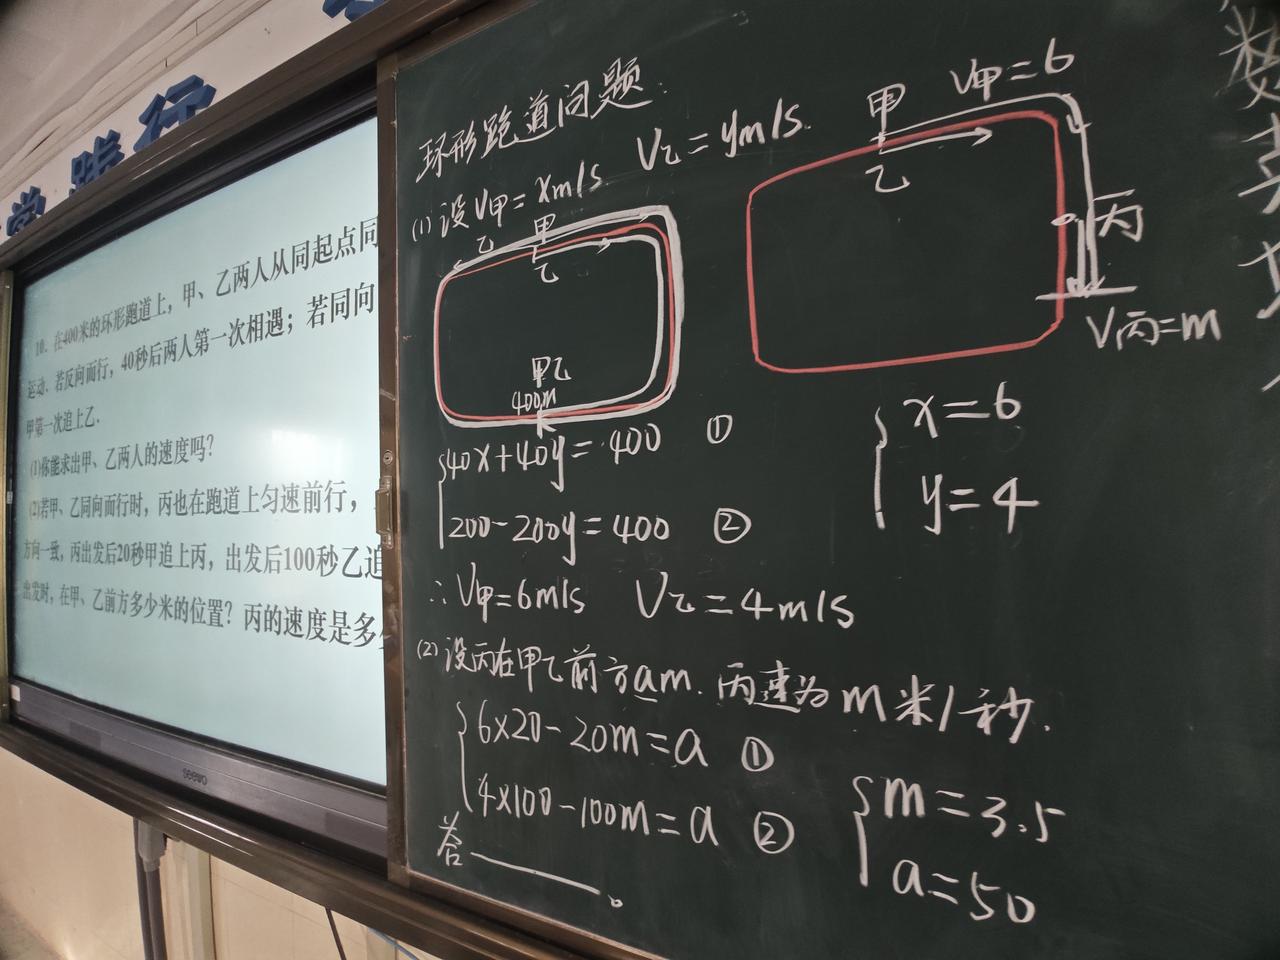 践行
10. 在400米的环形跑道上，甲、乙两人从同起点同
运动. 若反向而行，40秒后两人第一次相遇；若同向
甲第一次追上乙.
(1)你能求出甲、乙两人的速度吗？
(2)若甲、乙同向而行时，丙也在跑道上匀速前行，
方向一致，丙出发后20秒甲追上丙，出发后100秒乙追
出发时，在甲、乙前方多少米的位置？丙的速度是多少
seewo
环形跑道问题:
(1) 设V甲=xm/s V乙=ym/s.
乙 甲
乙
甲乙
400m
{40x+40y=400 ①
200-200y=400 ②
∴V甲=6m/s V乙=4m/s
(2) 设丙在甲乙前方am. 丙速为m米/秒.
{6×20-20m=a ①
4×100-100m=a ②
答 。
甲 V甲=6
乙
丙
V丙=m
{x=6
y=4
{m=3.5
a=50
数